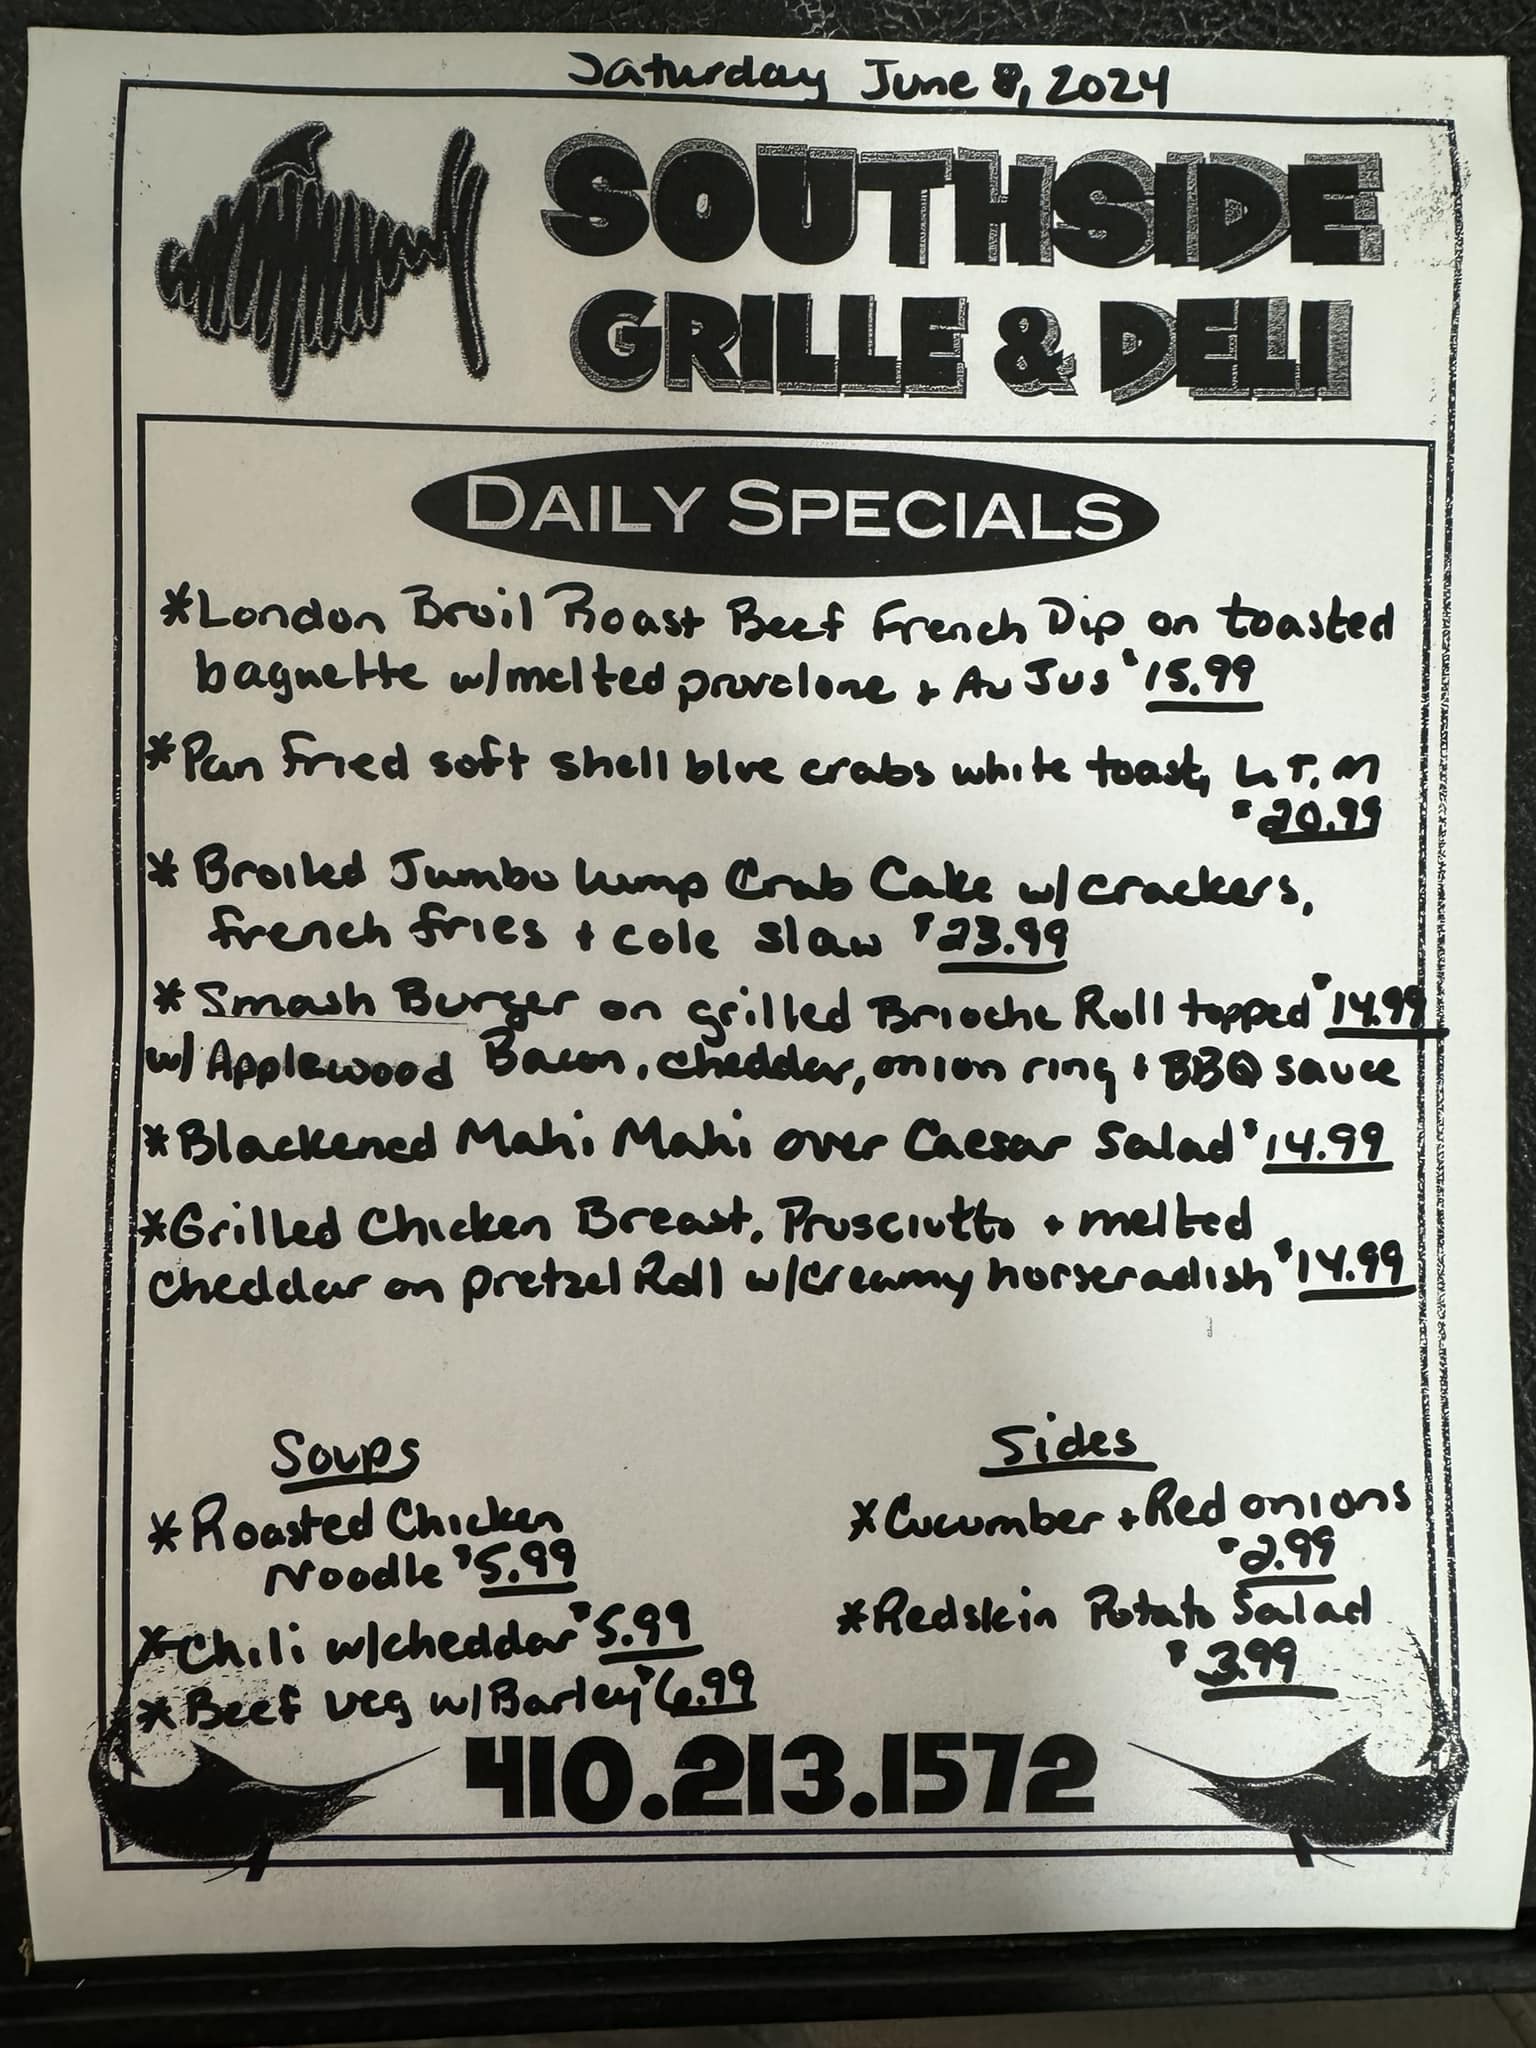 Saturday June 8, 2024
SOUTHSIDE
GRILLE & DELI
DAILY SPECIALS
*London Broil Roast Beef French Dip on toasted
baguette w/melted provolone + Au Jus $15.99
*Pan Fried soft shell blue crabs white toast, L.T.M
$20.99
* Broiled Jumbo lump Crab Cake w/crackers,
french fries + cole slaw $23.99
* Smash Burger on grilled Brioche Roll topped $14.99
w/ Applewood Bacon, cheddar, onion ring + BBQ sauce
*Blackened Mahi Mahi over Caesar Salad $14.99
*Grilled Chicken Breast, Prosciutto + melted
cheddar on pretzel Roll w/creamy horseradish $14.99
Soups
*Roasted Chicken
Noodle $5.99
*Chili w/cheddar $5.99
*Beef veg w/Barley $6.99
Sides
*Cucumber + Red onions
$2.99
*Redskin Potato Salad
$3.99
410.213.1572